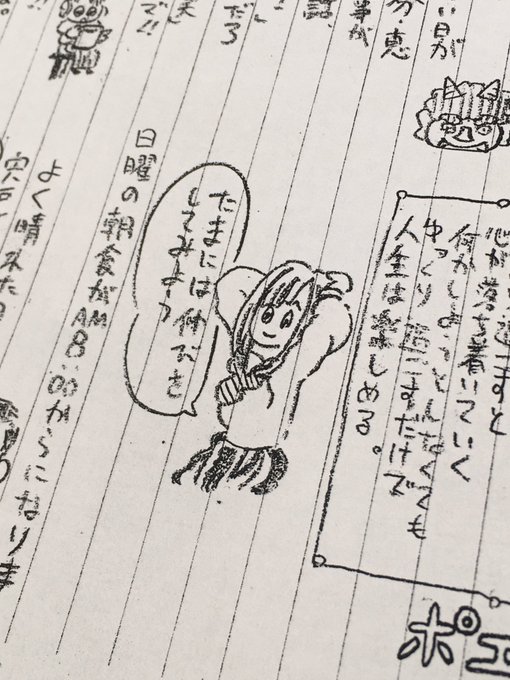 い日が
分・恵
事が
話、
だろ
ズ!!
心が落ち着いていく
何かしようとしなくても
ゆっくり過ごすだけで
人生は楽しめる。
ポエ
たまには仲びを
してみよう
日曜の朝食がAM8:00からになりま
よく晴れた日